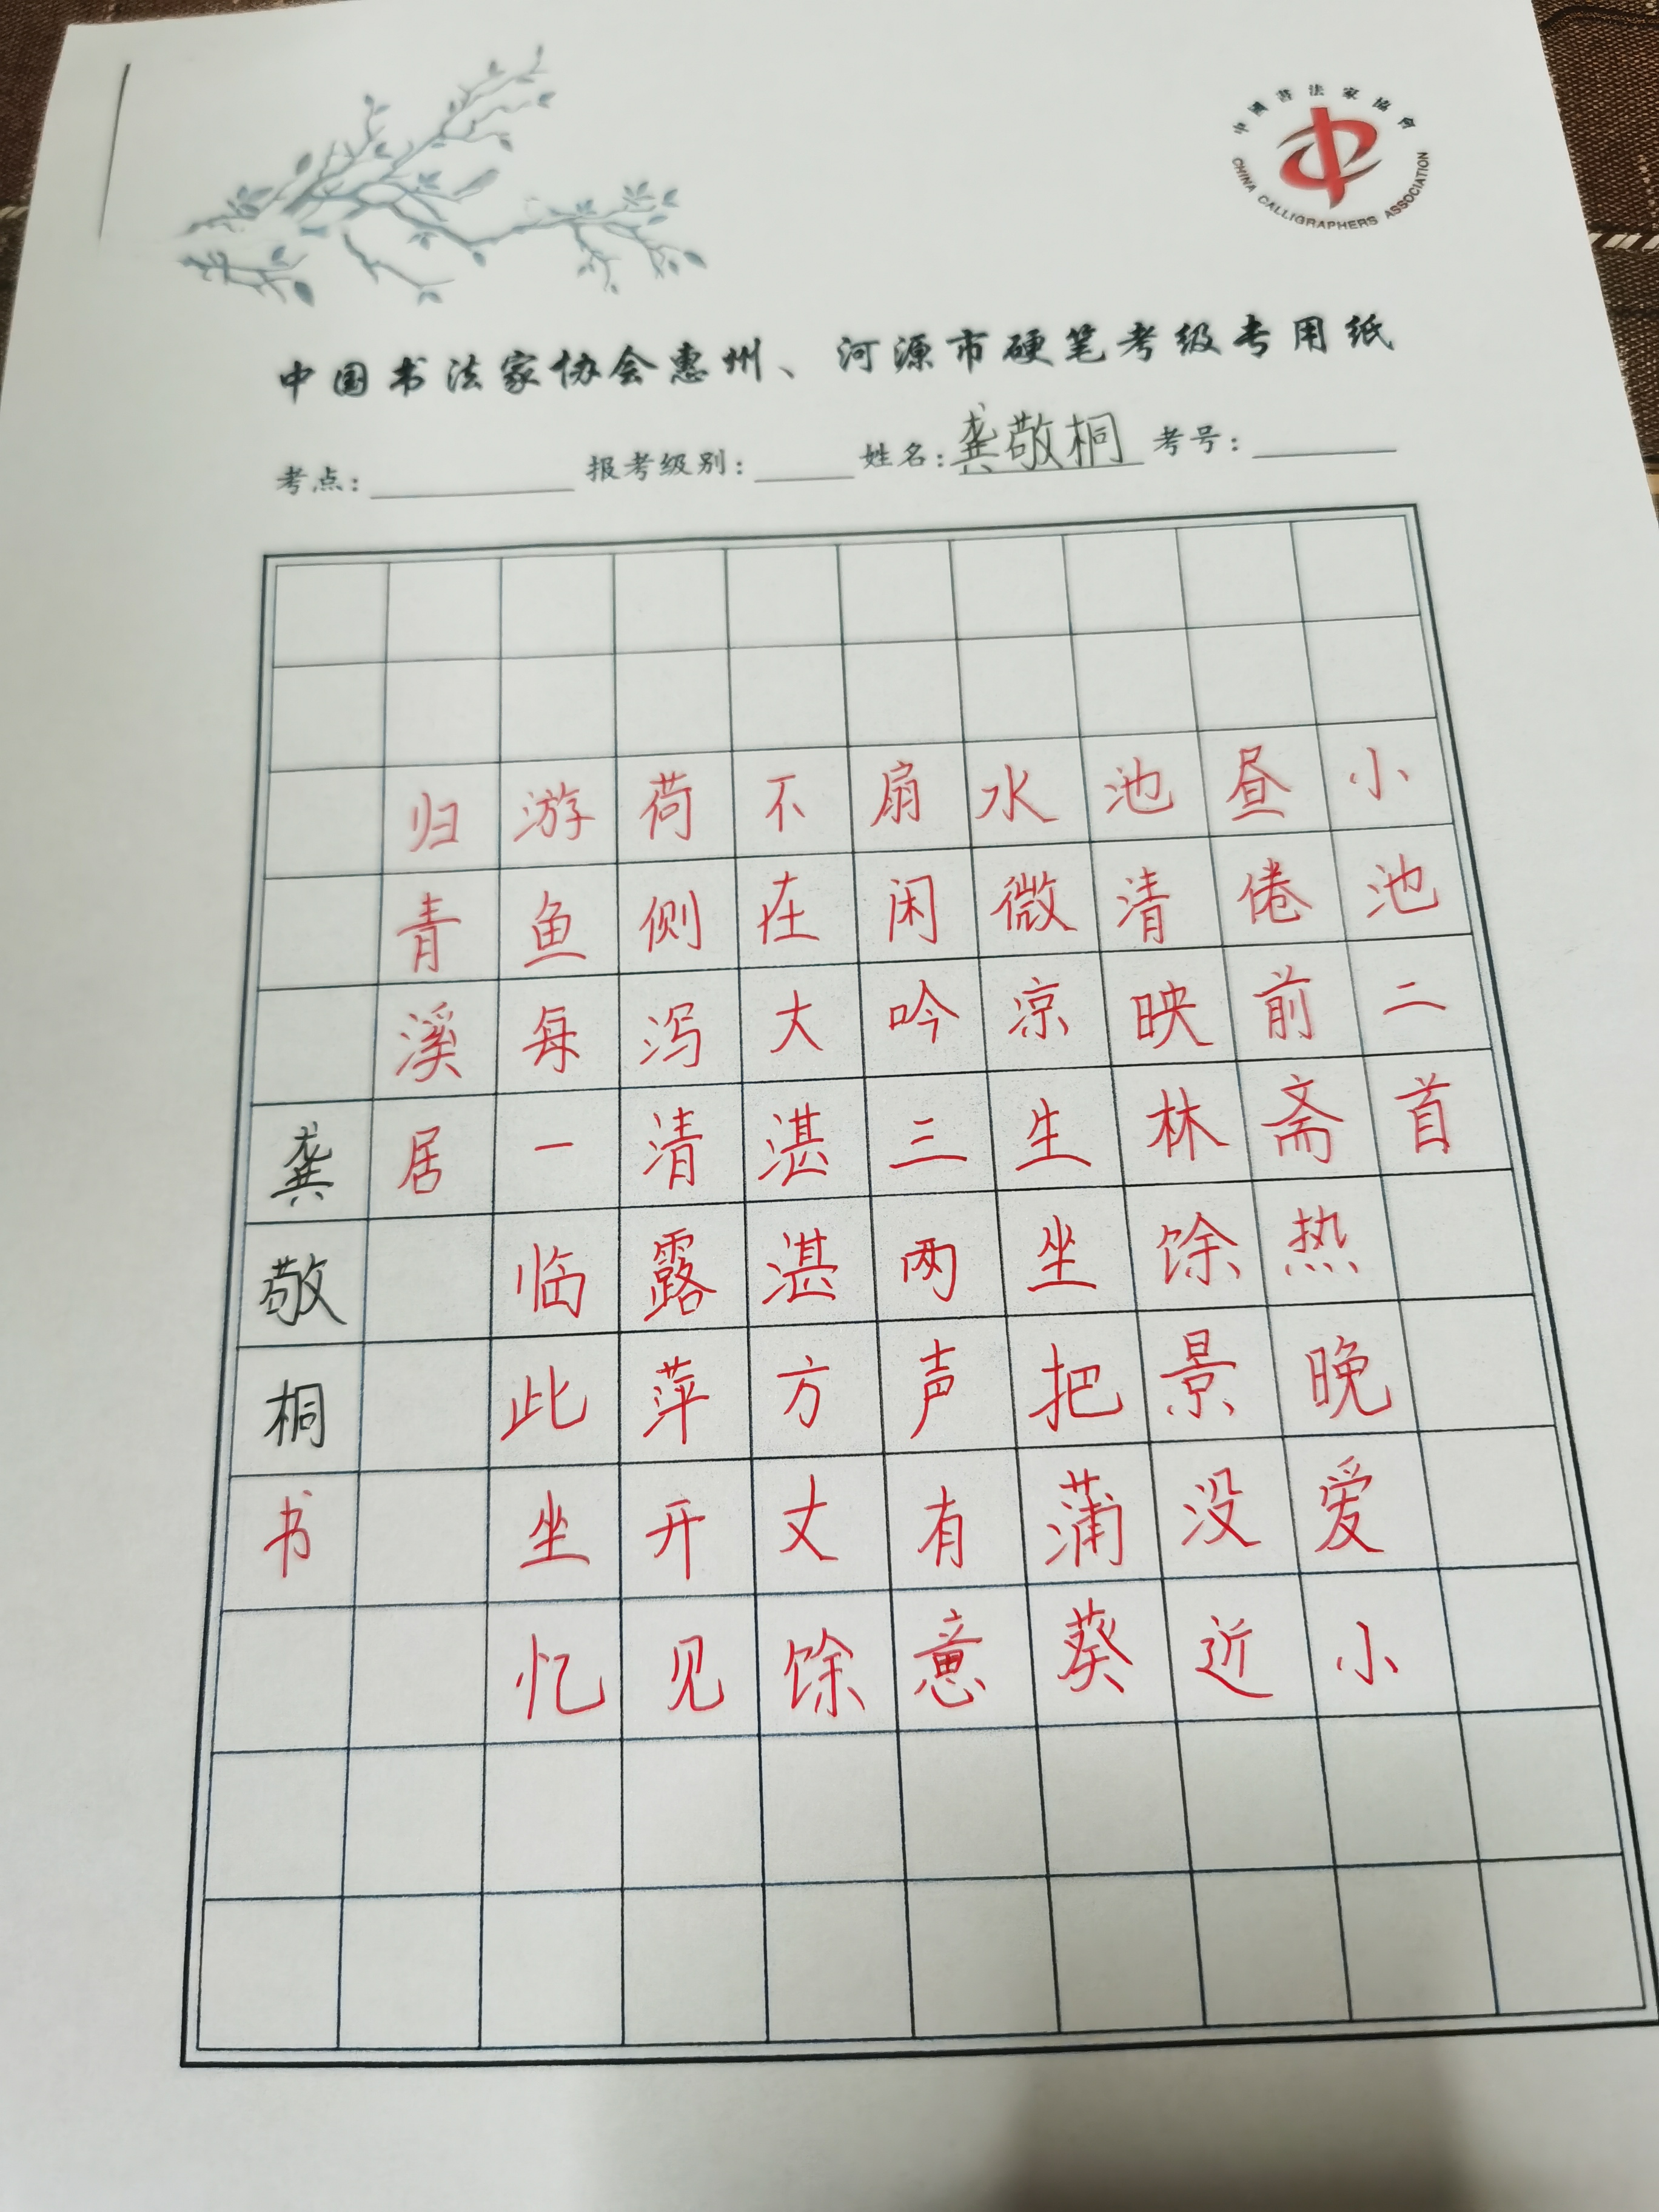 中國書法家協會
CHINA CALLIGRAPHERS ASSOCIATION
中国书法家协会惠州、河源市硬笔考级专用纸
考点： 报考级别： 姓名：龚敬桐 考号：
小池二首
昼倦前斋热晚爱小
池清映林馀景没近
水微凉生坐把蒲葵
扇闲吟三两声有意
不在大湛湛方丈馀
荷侧泻清露萍开见
游鱼每一临此坐忆
归青溪居
龚敬桐书